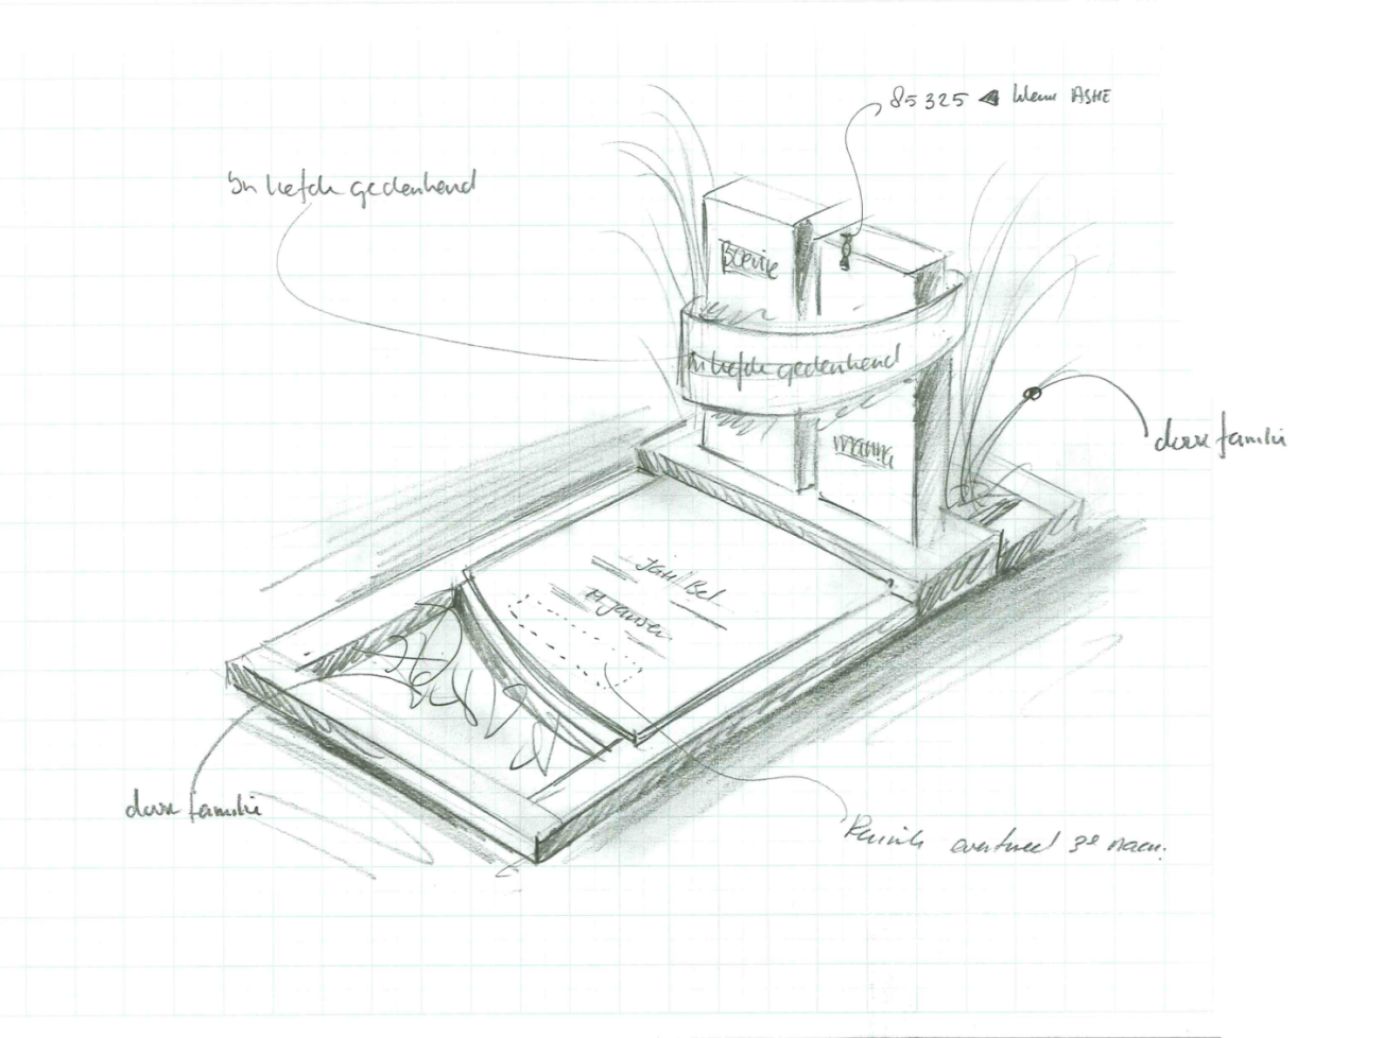 85325 ASHE
In liefde gedenkend
In liefde gedenkend
door familie
Jan Bel
H. Jansen
door familie
Ruimte eventueel 3e naam.